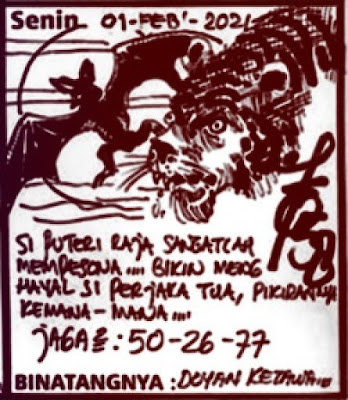 Senin 01-FEB'-2021
SI PUTERI RAJA SANGATLAH
MEMPESONA.... BIKIN MENG
HAYAL SI PERJAKA TUA, PIKIRANNYA
KEMANA-MANA....
JAGA²: 50-26-77
BINATANGNYA : DOYAN KETAWA....